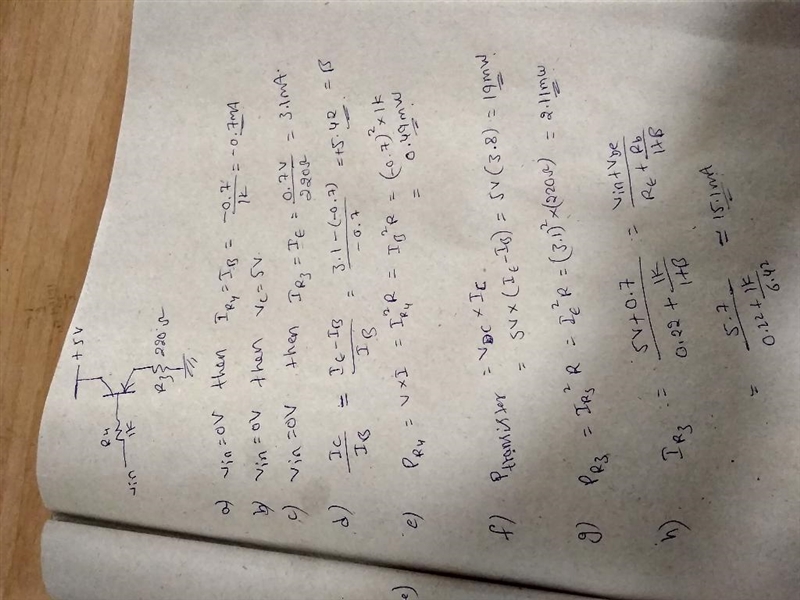 +5V
R4
Vin
1K
R3 220Ω
a) Vin=0V then I_R4 = I_B = -0.7/1K = -0.7mA
b) Vin=0V then Vc=5V
c) Vin=0V then I_R3 = I_E = 0.7V/220Ω = 3.1mA.
d) Ic/I_B = (I_E - I_B)/I_B = (3.1-(-0.7))/-0.7 = +5.42 = B
e) P_R4 = V×I = I²_R4 R = I_B²R = (-0.7)² × 1K
= 0.49mW
f) P_transistor = V_DC × I_C
= 5V × (I_E - I_B) = 5V(3.8) = 19mW
g) P_R3 = I²_R3 R = I_E²R = (3.1)² × (220Ω) = 2.11mW
h) I_R3 = (5V+0.7)/(0.22 + 1K/(1+B)) = (Vin+V_BE)/(R_E + R_b/(1+B))
= 5.7/(0.22 + 1K/6.42) = 15.1mA
e)